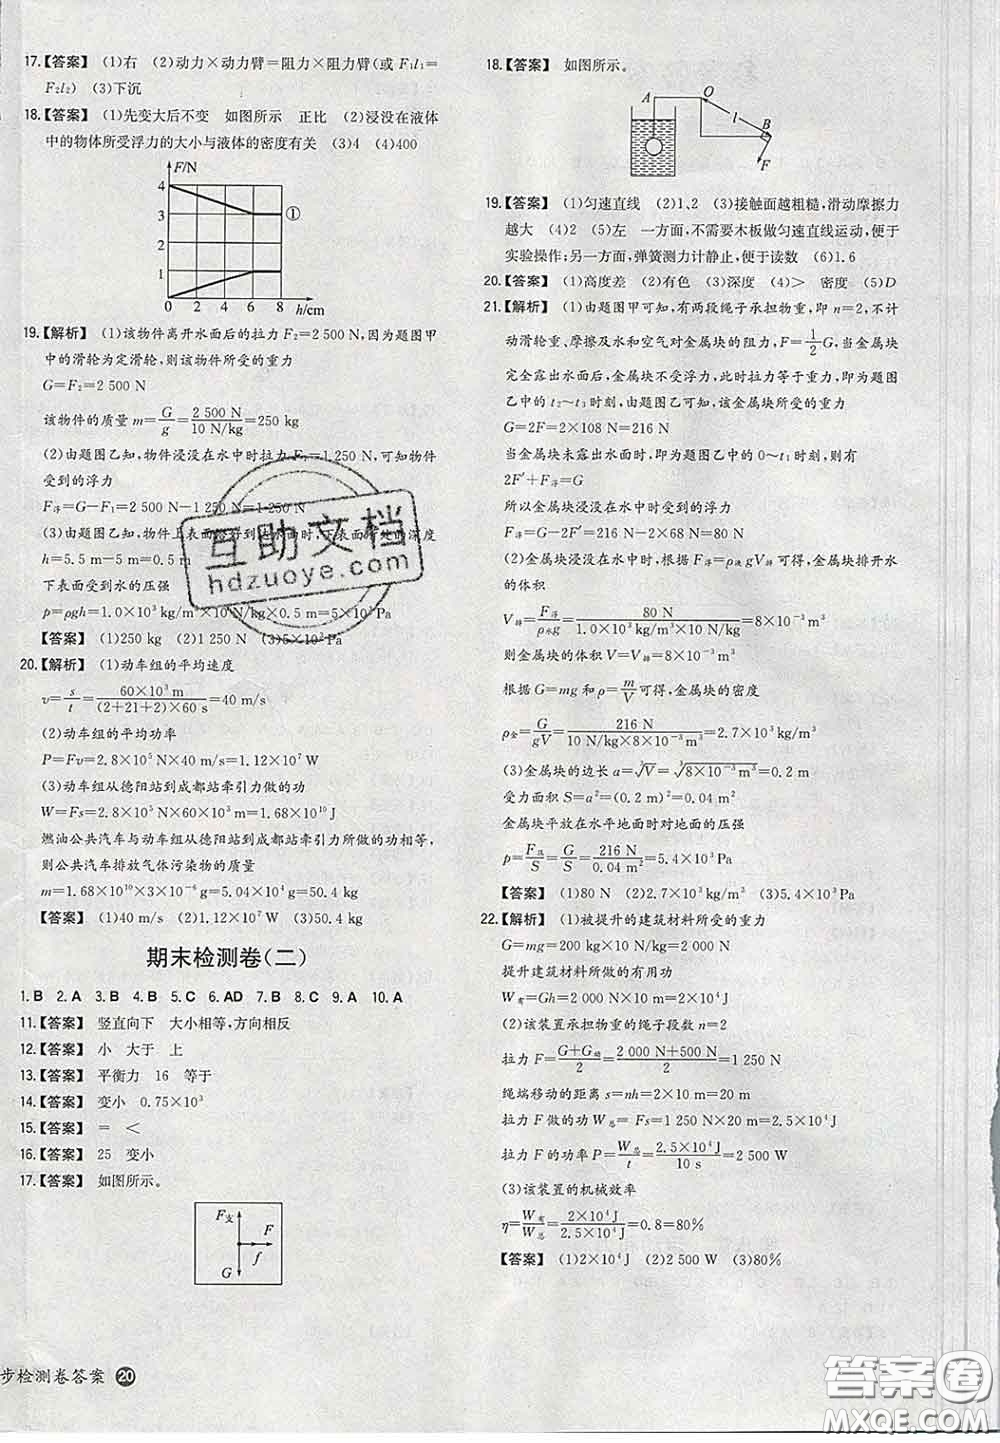 17.【答案】 (1)右 (2)动力×动力臂=阻力×阻力臂(或 F₁l₁=
F₂l₂) (3)下沉
18.【答案】 (1)先变大后不变 如图所示 正比 (2)浸没在液体
中的物体所受浮力的大小与液体的密度有关 (3)4 (4)400
F/N
4
3
2
1
①
0 2 4 6 8 h/cm
19.【解析】 (1)该物件离开水面后的拉力 F₂=2 500 N,因为题图甲
中的滑轮为定滑轮,则该物件所受的重力
G=F₂=2 500 N
该物件的质量 m=G/g=2 500 N/10 N/kg=250 kg
(2)由题图乙知,物件浸没在水中时拉力 F₁=1 250 N,可知物件
受到的浮力
F浮=G-F₁=2 500 N-1 250 N=1 250 N
(3)由题图乙知,物件上表面 时,下表面所处的深度
h=5.5 m-5 m=0.5 m
下表面受到水的压强
p=ρgh=1.0×10³ kg/m³×10 N/kg×0.5 m=5×10³ Pa
【答案】 (1)250 kg (2)1 250 N (3)5×10³ Pa
20.【解析】 (1)动车组的平均速度
v=s/t=60×10³ m/(2+21+2)×60 s=40 m/s
(2)动车组的平均功率
P=Fv=2.8×10⁵ N×40 m/s=1.12×10⁷ W
(3)动车组从德阳站到成都站牵引力做的功
W=Fs=2.8×10⁵ N×60×10³ m=1.68×10¹⁰ J
燃油公共汽车与动车组从德阳站到成都站牵引力所做的功相等,
则公共汽车排放气体污染物的质量
m=1.68×10¹⁰×3×10⁻⁶ g=5.04×10⁴ g=50.4 kg
【答案】 (1)40 m/s (2)1.12×10⁷ W (3)50.4 kg
期末检测卷(二)
1.B 2.A 3.B 4.B 5.C 6.AD 7.B 8.C 9.A 10.A
11.【答案】 竖直向下 大小相等,方向相反
12.【答案】 小 大于 上
13.【答案】 平衡力 16 等于
14.【答案】 变小 0.75×10³
15.【答案】 = <
16.【答案】 25 变小
17.【答案】 如图所示。
F支
F
f
G
步检测卷答案 20
18.【答案】 如图所示。
A O
l
B
F
19.【答案】 (1)匀速直线 (2)1、2 (3)接触面越粗糙,滑动摩擦力
越大 (4)2 (5)左 一方面,不需要木板做匀速直线运动,便于
实验操作;另一方面,弹簧测力计静止,便于读数 (6)1.6
20.【答案】 (1)高度差 (2)有色 (3)深度 (4)> 密度 (5)D
21.【解析】 (1)由题图甲可知,有两段绳子承担物重,即 n=2,不计
动滑轮重、摩擦及水和空气对金属块的阻力,F=1/2 G,当金属块
完全露出水面后,金属块不受浮力,此时拉力等于重力,即为题图
乙中的 t₂~t₃ 时刻,由题图乙可知,该金属块所受的重力
G=2F=2×108 N=216 N
当金属块未露出水面时,即为题图乙中的 0~t₁ 时刻,则有
2F′+F浮=G
所以金属块浸没在水中时受到的浮力
F浮=G-2F′=216 N-2×68 N=80 N
(2)金属块浸没在水中时,根据 F浮=ρ液gV排可得,金属块排开水
的体积
V排=F浮/ρ水g=80 N/1.0×10³ kg/m³×10 N/kg=8×10⁻³ m³
则金属块的体积 V=V排=8×10⁻³ m³
根据 G=mg 和 ρ=m/V可得,金属块的密度
ρ金=G/gV=216 N/10 N/kg×8×10⁻³ m³=2.7×10³ kg/m³
(3)金属块的边长 a=∛V=∛8×10⁻³ m³=0.2 m
受力面积 S=a²=(0.2 m)²=0.04 m²
金属块平放在水平地面时对地面的压强
p=F压/S=G/S=216 N/0.04 m²=5.4×10³ Pa
【答案】 (1)80 N (2)2.7×10³ kg/m³ (3)5.4×10³ Pa
22.【解析】 (1)被提升的建筑材料所受的重力
G=mg=200 kg×10 N/kg=2 000 N
提升建筑材料所做的有用功
W有=Gh=2 000 N×10 m=2×10⁴ J
(2)该装置承担物重的绳子段数 n=2
拉力 F=G+G动/2=2 000 N+500 N/2=1 250 N
绳端移动的距离 s=nh=2×10 m=20 m
拉力 F 做的功 W总=Fs=1 250 N×20 m=2.5×10⁴ J
拉力 F 的功率 P=W总/t=2.5×10⁴ J/10 s=2 500 W
(3)该装置的机械效率
η=W有/W总=2×10⁴ J/2.5×10⁴ J=0.8=80%
【答案】 (1)2×10⁴ J (2)2 500 W (3)80%
互助文档
hdzuoye.com
答案圈
MXQE.COM